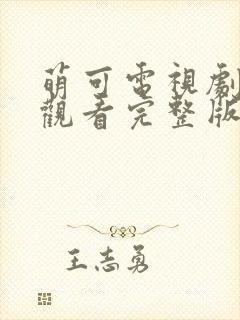 萌可電視劇
觀看完整版
王志勇